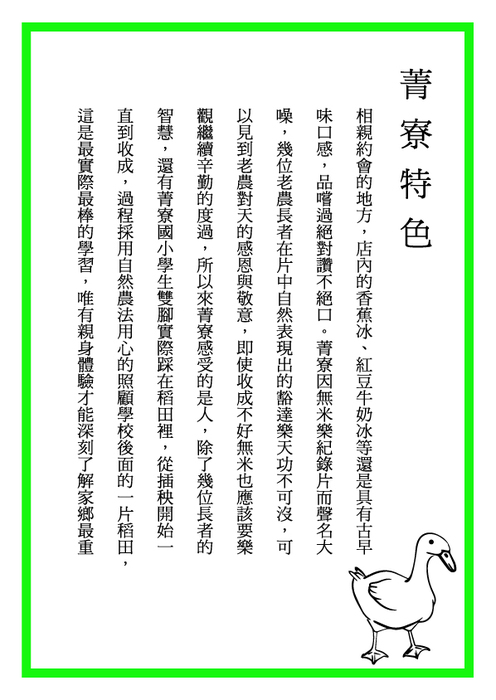 菁寮特色
相親約會的地方，店內的香蕉冰、紅豆牛奶冰等還是具有古早
味口感，品嚐過絕對讚不絕口。菁寮因無米樂紀錄片而聲名大
噪，幾位老農長者在片中自然表現出的豁達樂天功不可沒，可
以見到老農對天的感恩與敬意，即使收成不好無米也應該要樂
觀繼續辛勤的度過，所以來菁寮感受的是人，除了幾位長者的
智慧，還有菁寮國小學生雙腳實際踩在稻田裡，從插秧開始一
直到收成，過程採用自然農法用心的照顧學校後面的一片稻田，
這是最實際最棒的學習，唯有親身體驗才能深刻了解家鄉最重